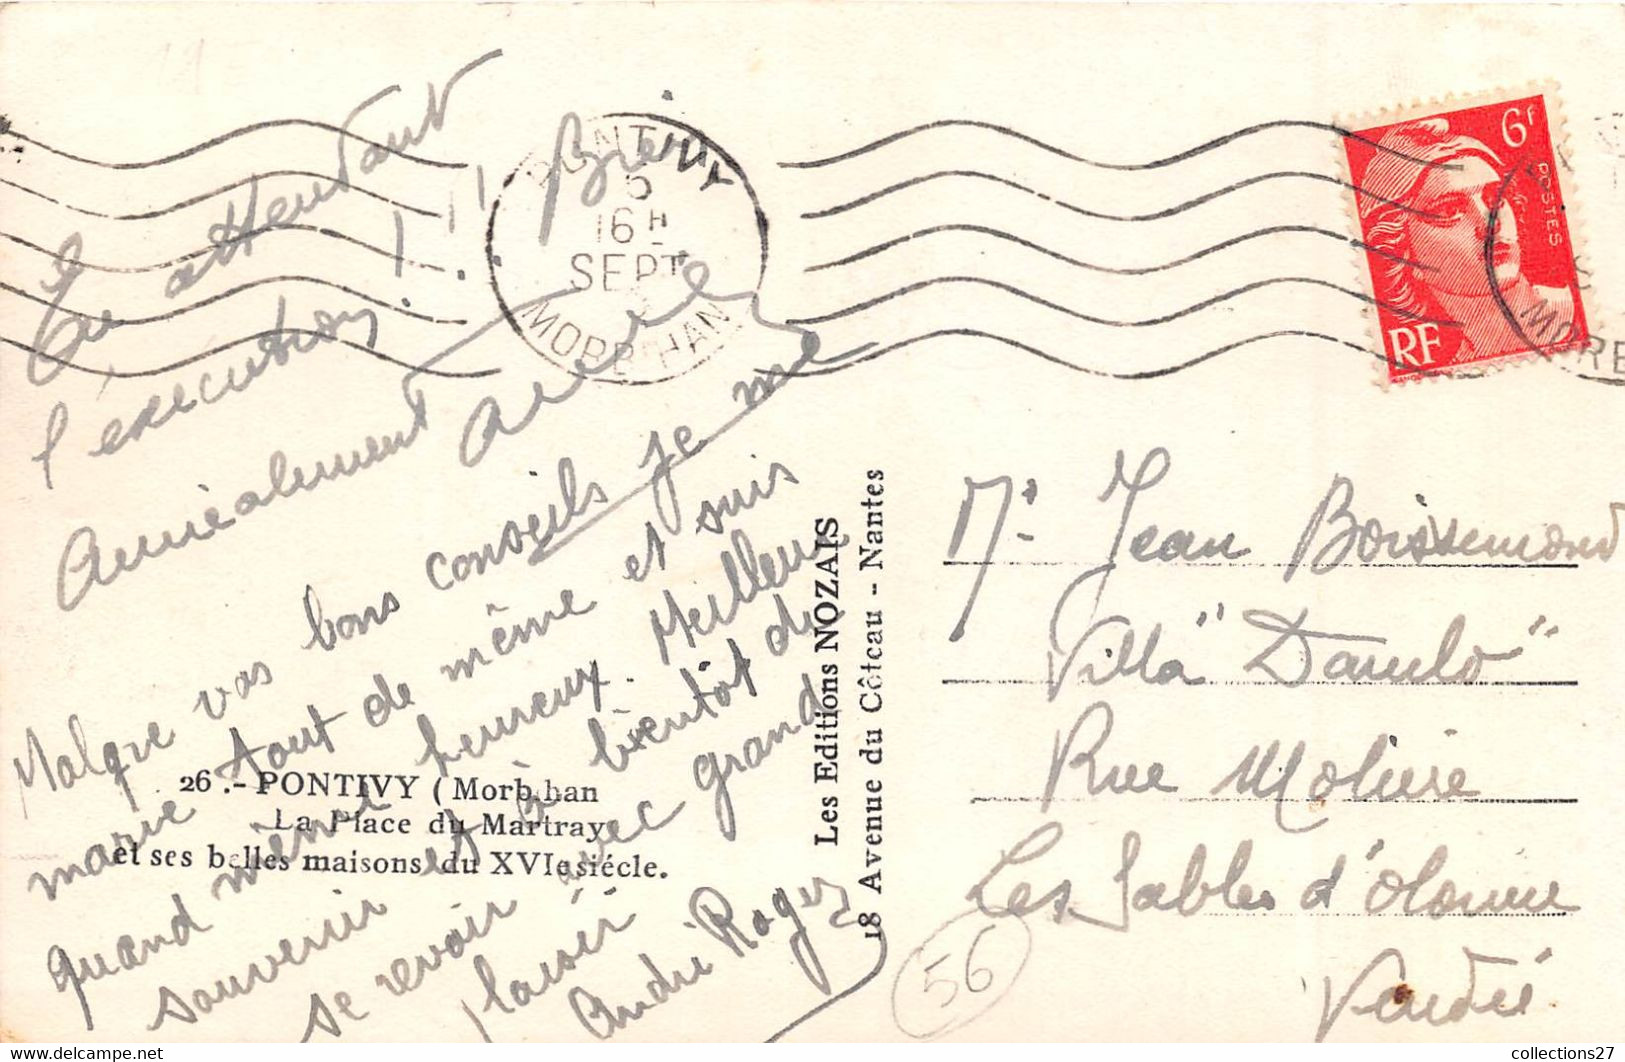 En attendant
l'exécution ! ! !
Amicalement
Pierre
Malgré vos bons conseils je me
marie tout de même et suis
quand même heureux. Meilleurs
souvenir et à bientôt de
se revoir avec grand
plaisir
André Roger
26.- PONTIVY (Morbihan
La Place du Martray
et ses belles maisons du XVIe siécle.
Les Editions NOZAIS
18 Avenue du Côteau - Nantes
PONTIVY
6
16 H
SEPT
MORBIHAN
6F
POSTES
RF
MORB
Mr Jean Boissemond
Villa "Danilo"
Rue Molière
Les Sables d'Olonne
Vendée
56
collections27